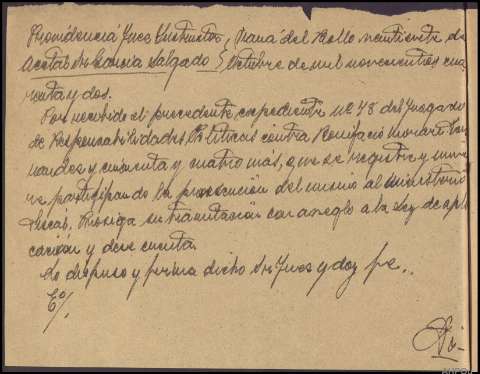 Providencia Juez Instructor, Viana del Bollo veintisiete de
Acctal Sr Garcia Salgado Octubre de mil novecientos cua
renta y dos.
Por recibido el precedente, expediente nº 48 del Juzgado
de Responsabilidades Politicas contra Bonifacio
y cincuenta y cuatro más, que se registre y
participando la prosecución del mismo al Ministerio
Fiscal. Prosiga su tramitación con arreglo a la Ley de apli
cación y dese cuenta.
Lo dispuso y firma dicho Sr Juez y doy fe..
E/.